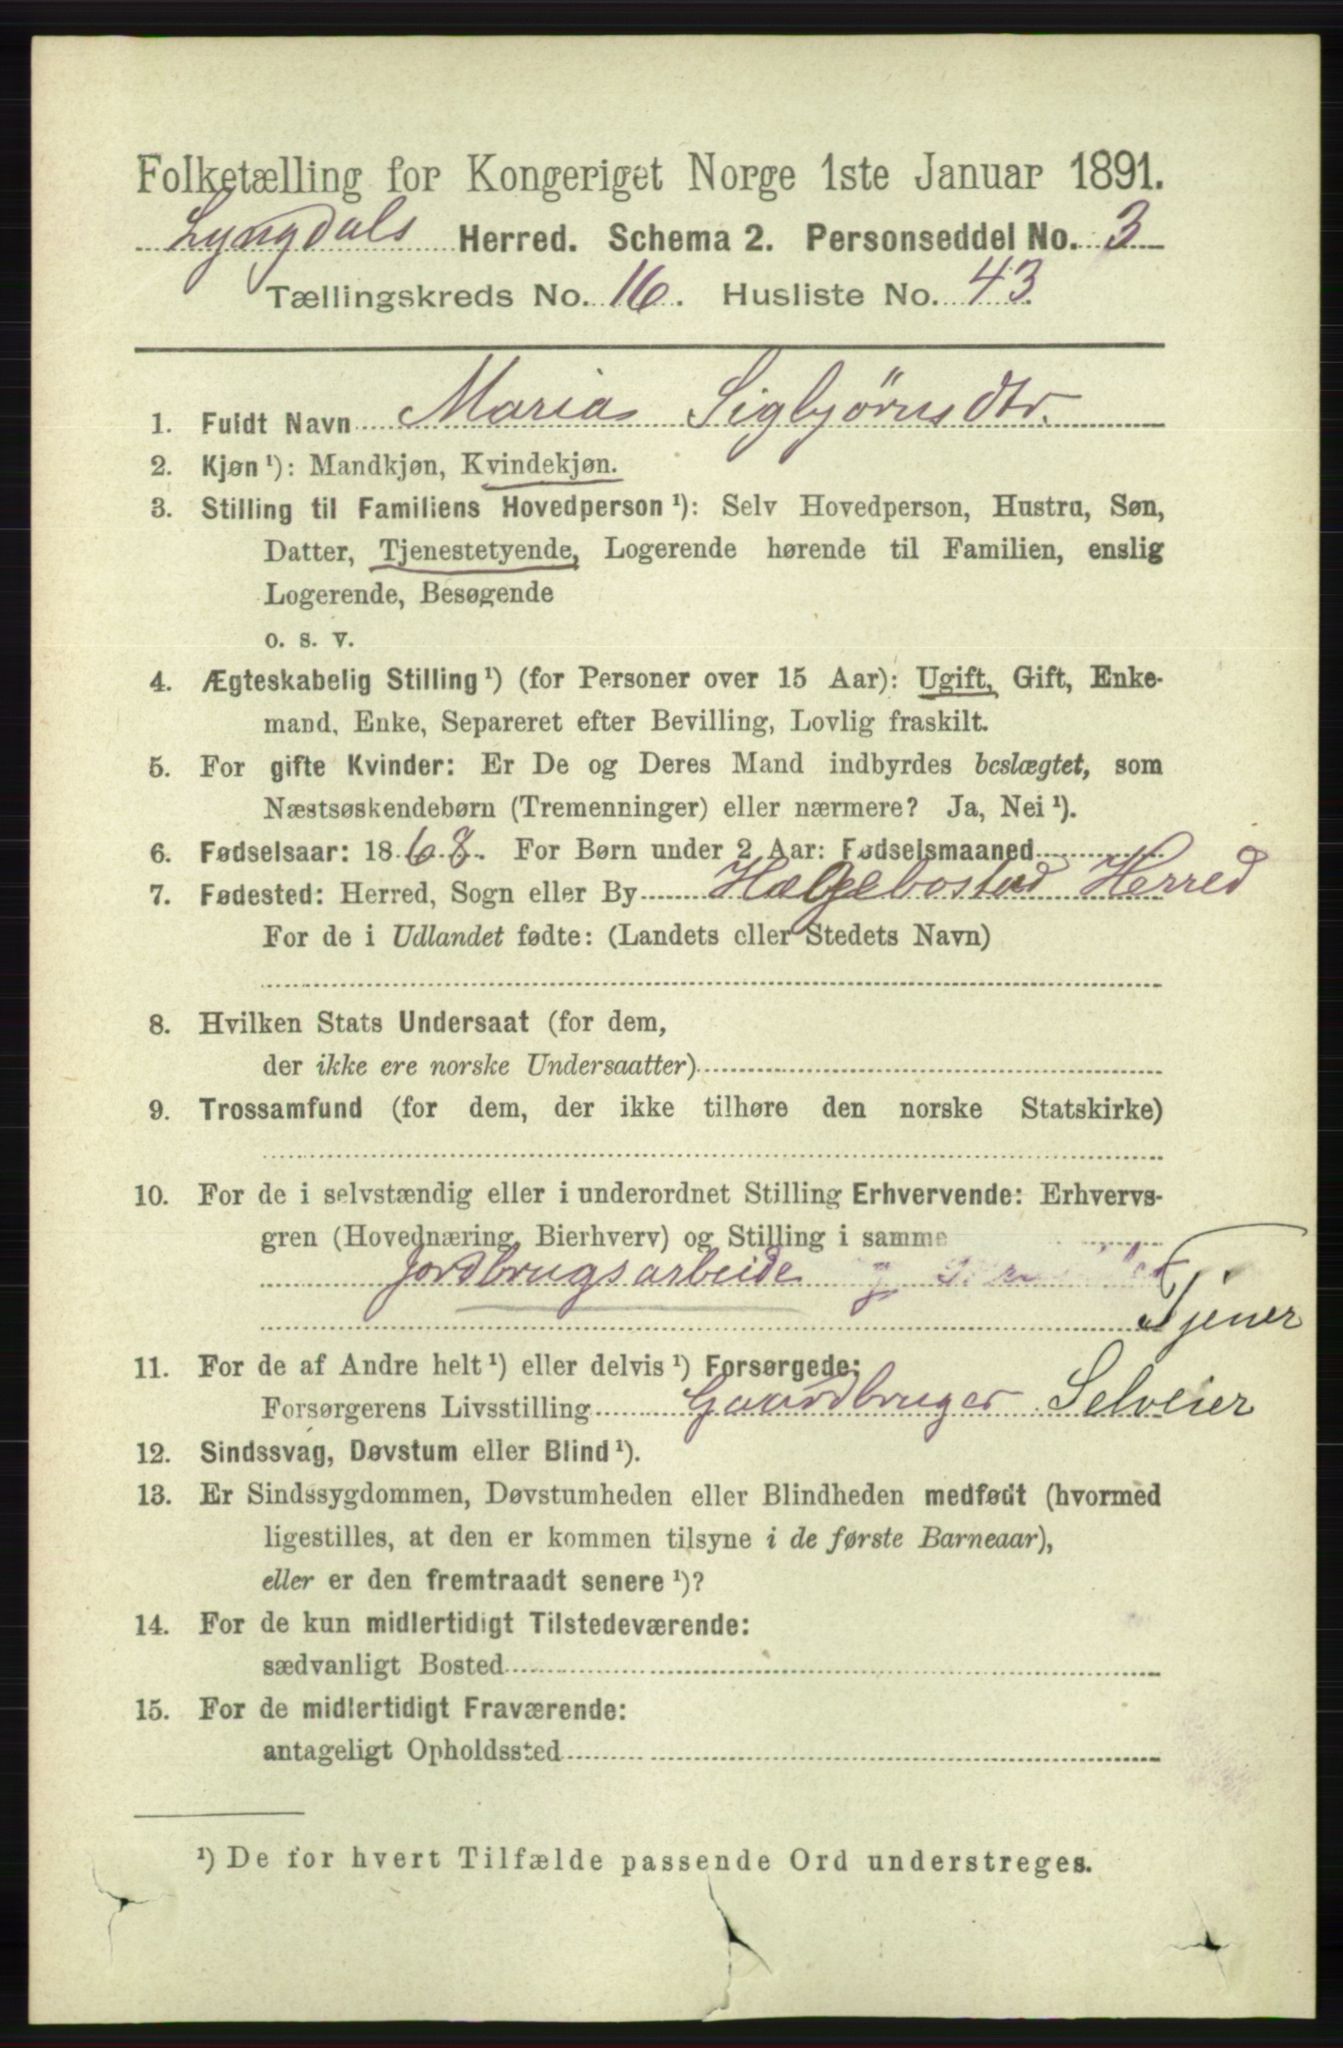 Folketælling for Kongeriget Norge 1ste Januar 1891.
Lyngdals Herred. Schema 2. Personseddel No. 3
Tællingskreds No. 16. Husliste No. 43
1. Fuldt Navn Maria Sigbjørnsdtr.
2. Kjøn¹): Mandkjøn, Kvindekjøn.
3. Stilling til Familiens Hovedperson¹): Selv Hovedperson, Hustru, Søn,
Datter, Tjenestetyende, Logerende hørende til Familien, enslig
Logerende, Besøgende
o. s. v.
4. Ægteskabelig Stilling¹) (for Personer over 15 Aar): Ugift, Gift, Enke-
mand, Enke, Separeret efter Bevilling, Lovlig fraskilt.
5. For gifte Kvinder: Er De og Deres Mand indbyrdes beslægtet, som
Næstsøskendebørn (Tremenninger) eller nærmere? Ja, Nei¹).
6. Fødselsaar: 1868. For Børn under 2 Aar: Fødselsmaaned
7. Fødested: Herred, Sogn eller By Hægebostad Herred
For de i Udlandet fødte: (Landets eller Stedets Navn)
8. Hvilken Stats Undersaat (for dem,
der ikke ere norske Undersaatter)
9. Trossamfund (for dem, der ikke tilhøre den norske Statskirke)
10. For de i selvstændig eller i underordnet Stilling Erhvervende: Erhvervs-
gren (Hovednæring, Bierhverv) og Stilling i samme
Jordbrugsarbeide
Tjener
11. For de af Andre helt¹) eller delvis¹) Forsørgede:
Forsørgerens Livsstilling Gaardbruger Selveier
12. Sindssvag, Døvstum eller Blind¹).
13. Er Sindssygdommen, Døvstumheden eller Blindheden medfødt (hvormed
ligestilles, at den er kommen tilsyne i de første Barneaar),
eller er den fremtraadt senere¹)?
14. For de kun midlertidigt Tilstedeværende:
sædvanligt Bosted
15. For de midlertidigt Fraværende:
antageligt Opholdssted
¹) De for hvert Tilfælde passende Ord understreges.